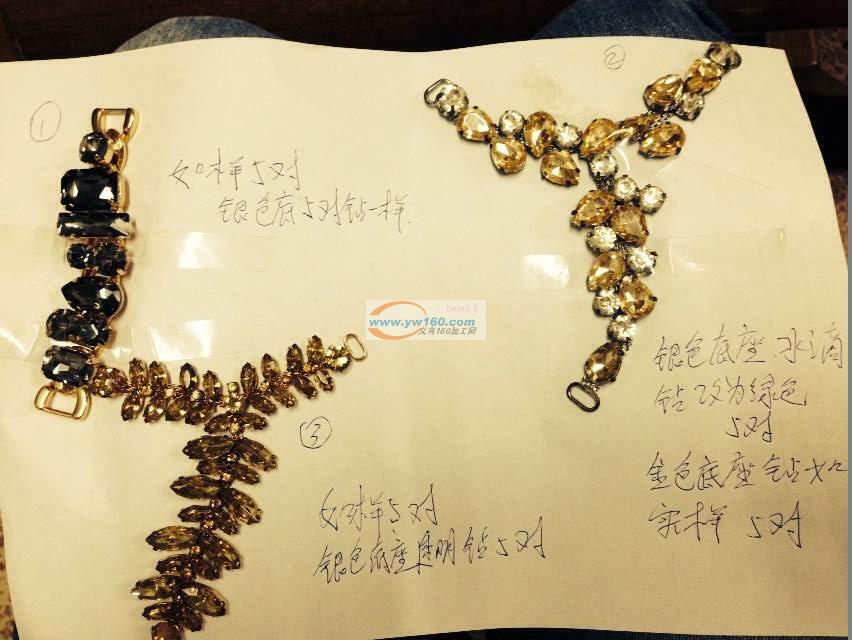 ①
如样5对
银色底5对钻一样.
②
银色底座 水滴
钻改为绿色
5对
金色底座钻如
实样 5对
③
如样5对
银色底座透明钻5对
beta2.1
www.yw160.com
义乌160加工网